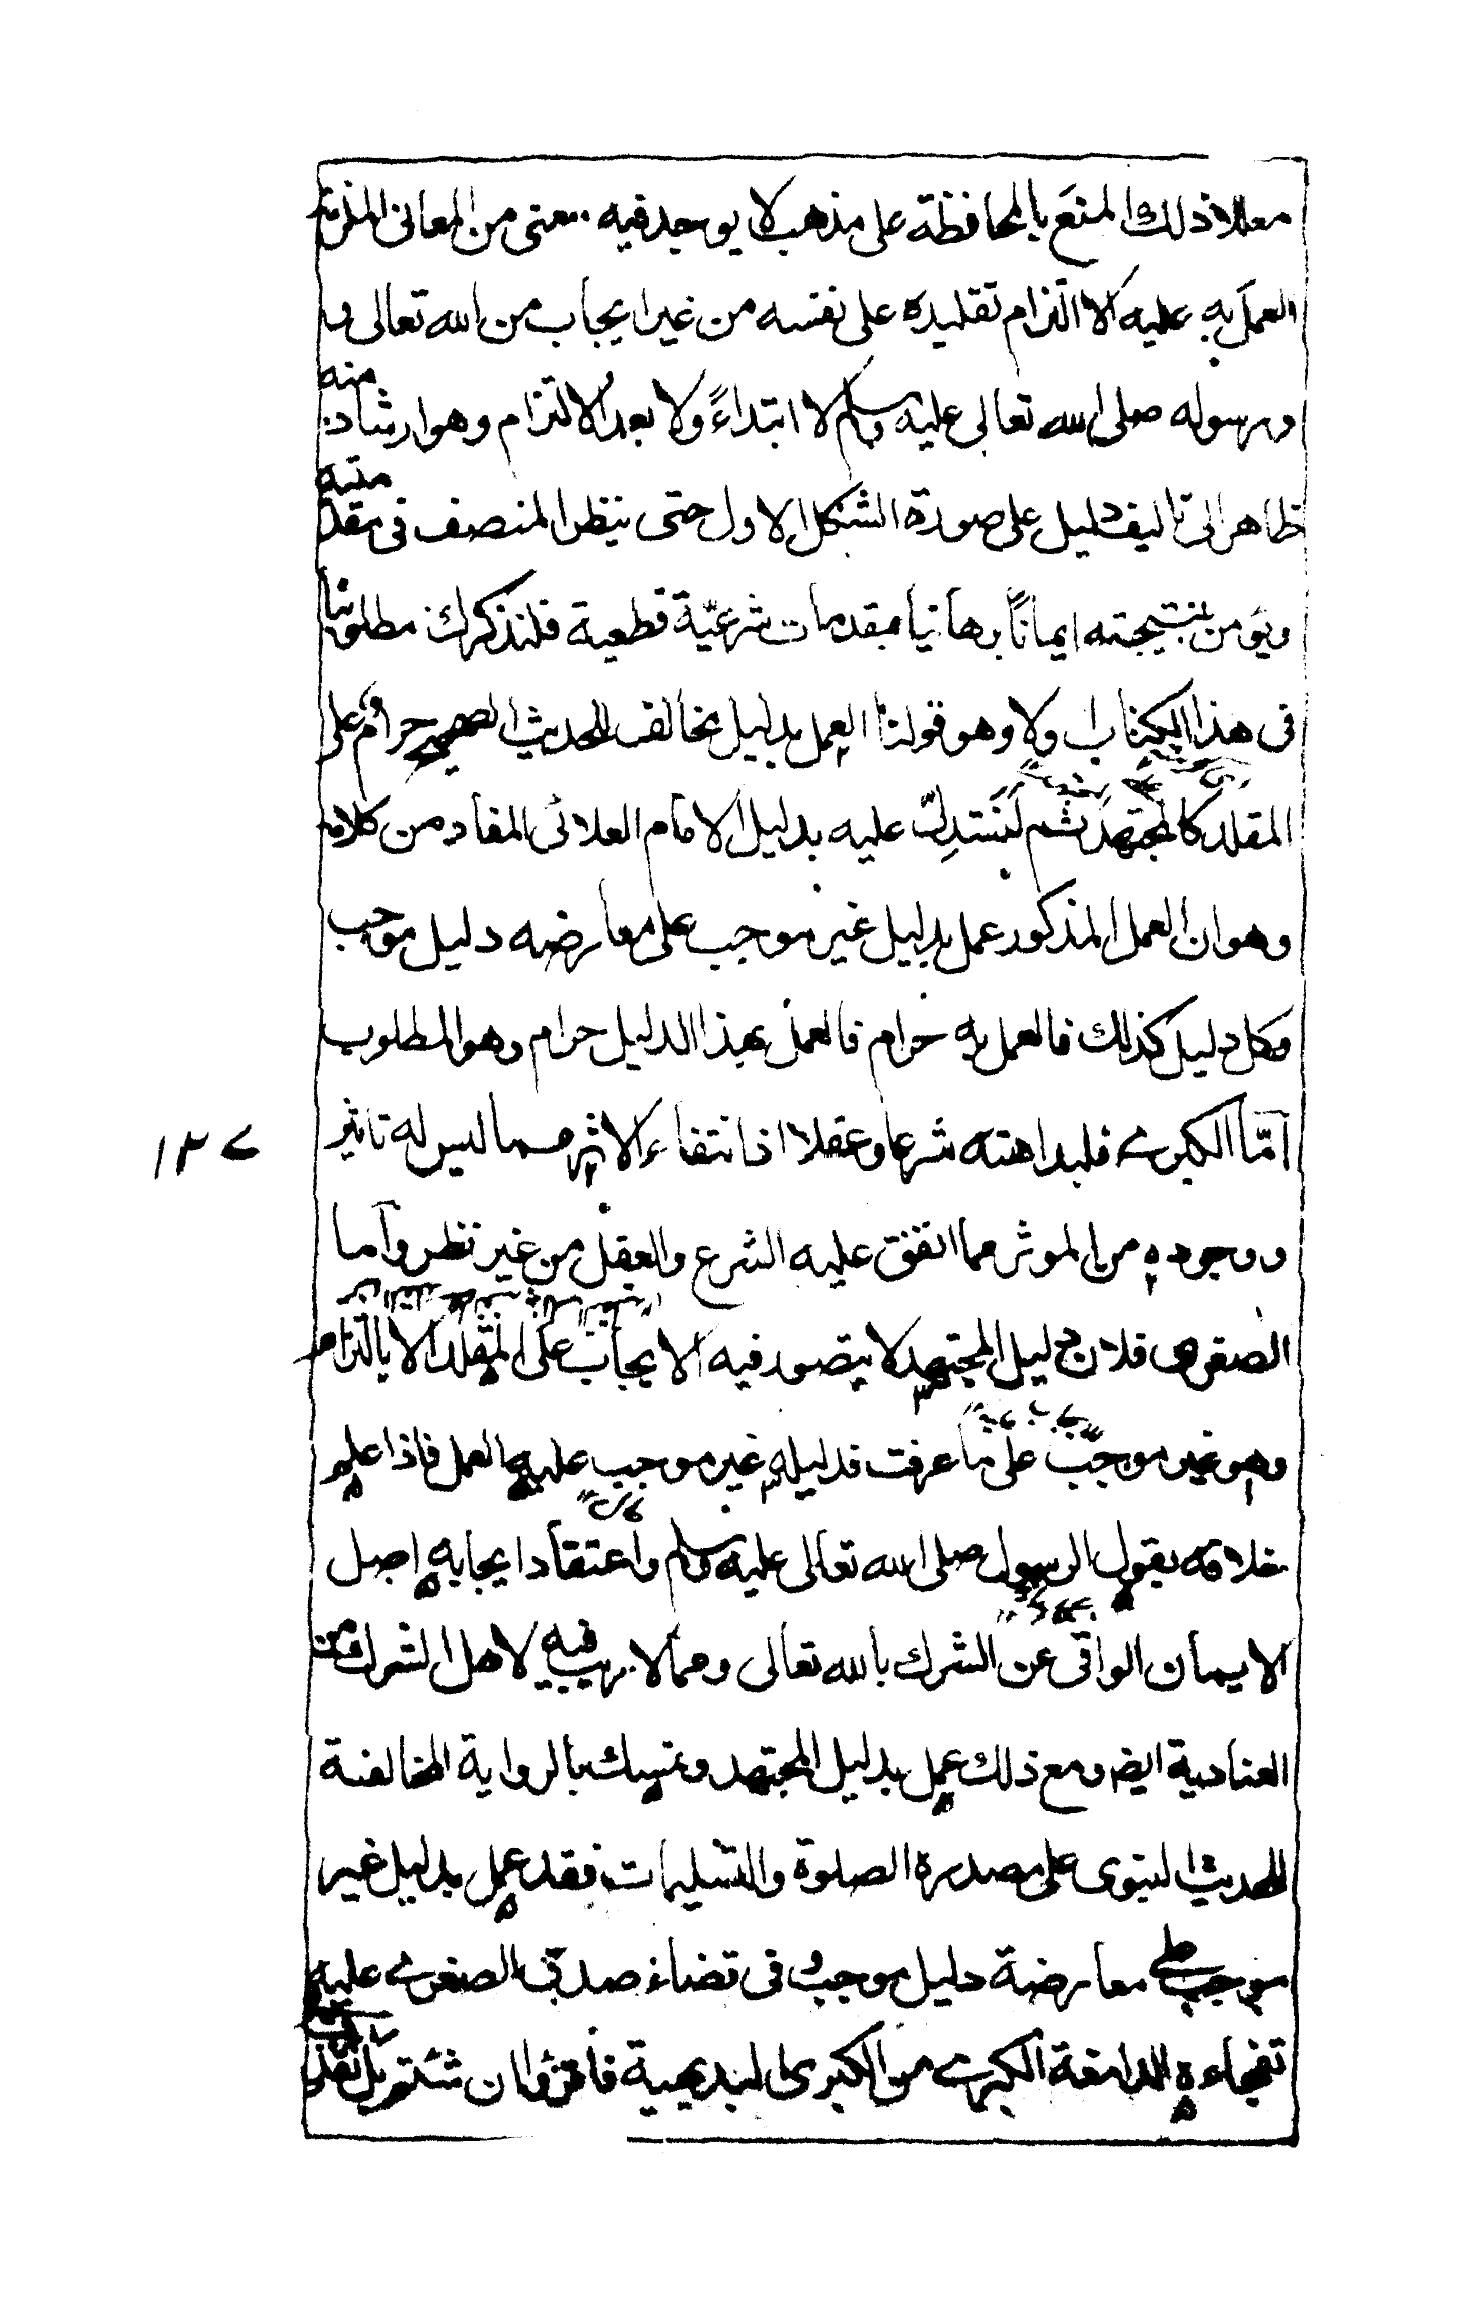 معللا ذلك المنع بالمحافظة على مذهب لا يوجد فيه معنى من المعانى الملزمة
العمل به عليه الا التزام تقليده على نفسه من غير ايجاب من الله تعالى و
ورسوله صلى الله تعالى عليه وسلم لا ابتداءً ولا بعد الالتزام وهو ارشاد منه
ظاهر الى تاليف دليل على صورة الشكل الاول حتى ينظر المنصف فى مقدمته
ويؤمن بنتيجته ايمانًا برهانيا بمقدمات شرعيّة قطعية فلنذكرك مطلوبنا
فى هذا الكتاب اولا وهو قولنا العمل بدليل يخالف الحديث الصحيح حرام على
المقلد كالمجتهد ثم لنستدلّ عليه بدليل الامام العلائى المفاد من كلامه
وهو ان العمل المذكور عمل بدليل غير موجب على معارضه دليل موجب
وكل دليل كذلك فالعمل به حرام فالعمل بهذا الدليل حرام وهو المطلوب
امّا الكبرى فلبداهته شرعا وعقلا اذ انتفاء الاثر مما ليس له تاثير
١٣٧
ووجوده من الموثر مما اتفق عليه الشرع والعقل من غير نظر واما
الصغرى فلان دليل المجتهد لا يتصور فيه الايجاب على المقلد الا بالتزام
وهو غير موجب على ما عرفت فدليله غير موجب عليه العمل فاذا علم
خلافه بقول الرسول صلى الله تعالى عليه وسلم واعتقاد ايجابه اصل
الايمان الواقى عن الشرك بالله تعالى ومما لا ريب فيه لاهل الشرك من
العنادية ايضا ومع ذلك عمل بدليل المجتهد وتمسك بالرواية المخالفة
للحديث النبوى على مصدره الصلوة والتسليمات فقد عمل بدليل غير
موجب على معارضة دليل موجب وفى قضاء صدق الصغرى عليه
الدامغة الكبرى من الكبرى البديهية فاقرؤا ان شئتم بل نقذف